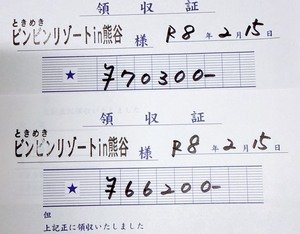 領収証
ときめき
ビンビンリゾートin熊谷 様 R8年2月15日
★ ¥70300-
領収証
ときめき
ビンビンリゾートin熊谷 様 R8年2月15日
★ ¥66200-
但
上記正に領収いたしました